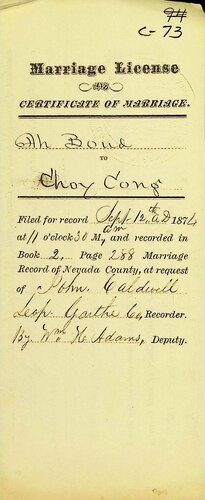 94
C-73
Marriage License
AND
CERTIFICATE OF MARRIAGE.
Ah Boud
TO
Choy Cong
Filed for record Sept 12th A D 1874
at 11 o'clock 30 M, A M and recorded in
Book 2, Page 288 Marriage
Record of Nevada County, at request
of John Caldwell
Leop. Garthe Co, Recorder.
By Wm H Adams, Deputy.